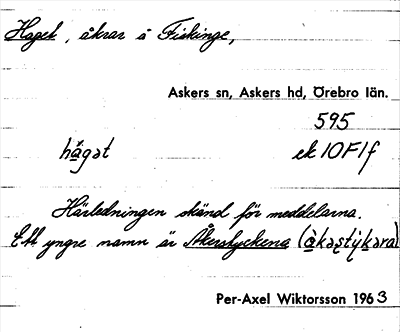 Haget, åkrar å Fiskinge,
Askers sn, Askers hd, Örebro län.
595
hågat ek 10F1f
Härledningen okänd för meddelarna.
Ett yngre namn är Åkerstyckena
Per-Axel Wiktorsson 1963